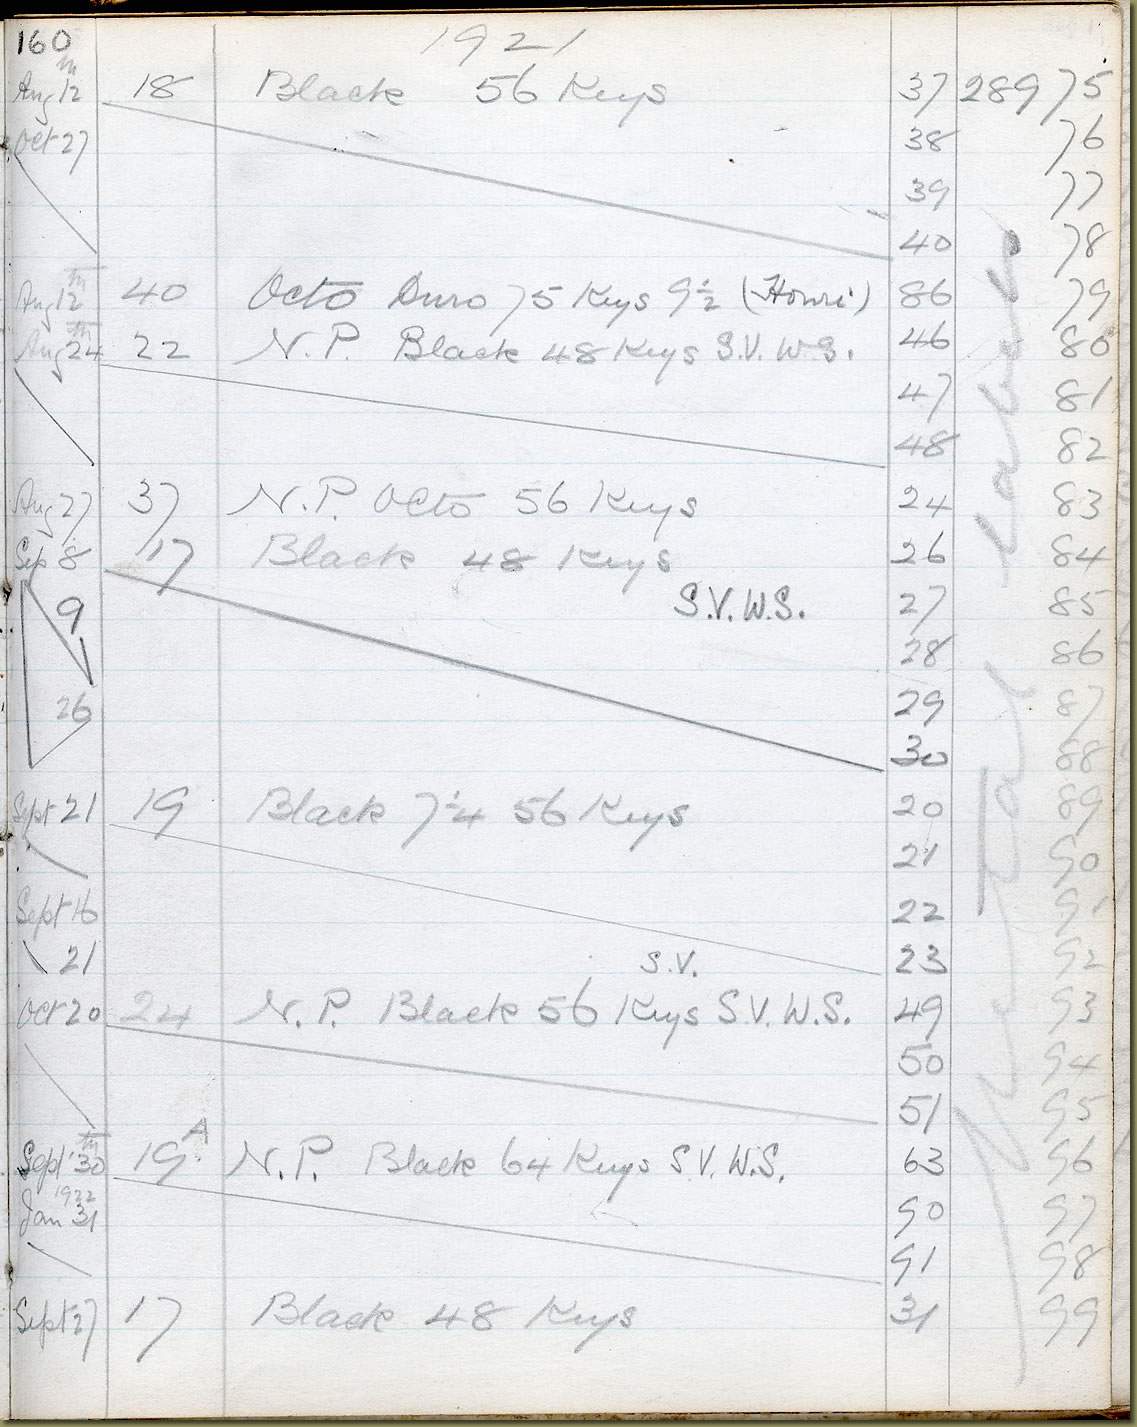 160 1921
Aug 12th 18 Black 56 Keys 37 28975
Oct 27 38 76
39 77
40 78
Aug 12th 40 Octo Duro 75 Keys 9½ 86 79
Aug 24th 22 N.P. Black 48 Keys S.V. W.S. 46 80
47 81
48 82
Aug 27 37 N.P. Octo 56 Keys 24 83
Sep 8 17 Black 48 Keys 26 84
9 S.V. W.S. 27 85
28 86
26 29 87
30 88
Sept 21 19 Black 7¼ 56 Keys 20 89
21 90
Sept 16 22 91
21 S.V. 23 92
Oct 20 24 N.P. Black 56 Keys S.V. W.S. 49 93
50 94
51 95
Sept 30th 19A N.P. Black 64 Keys S.V. W.S. 63 96
Jan 31 1922 90 97
91 98
Sept 27 17 Black 48 Keys 31 99
Labels